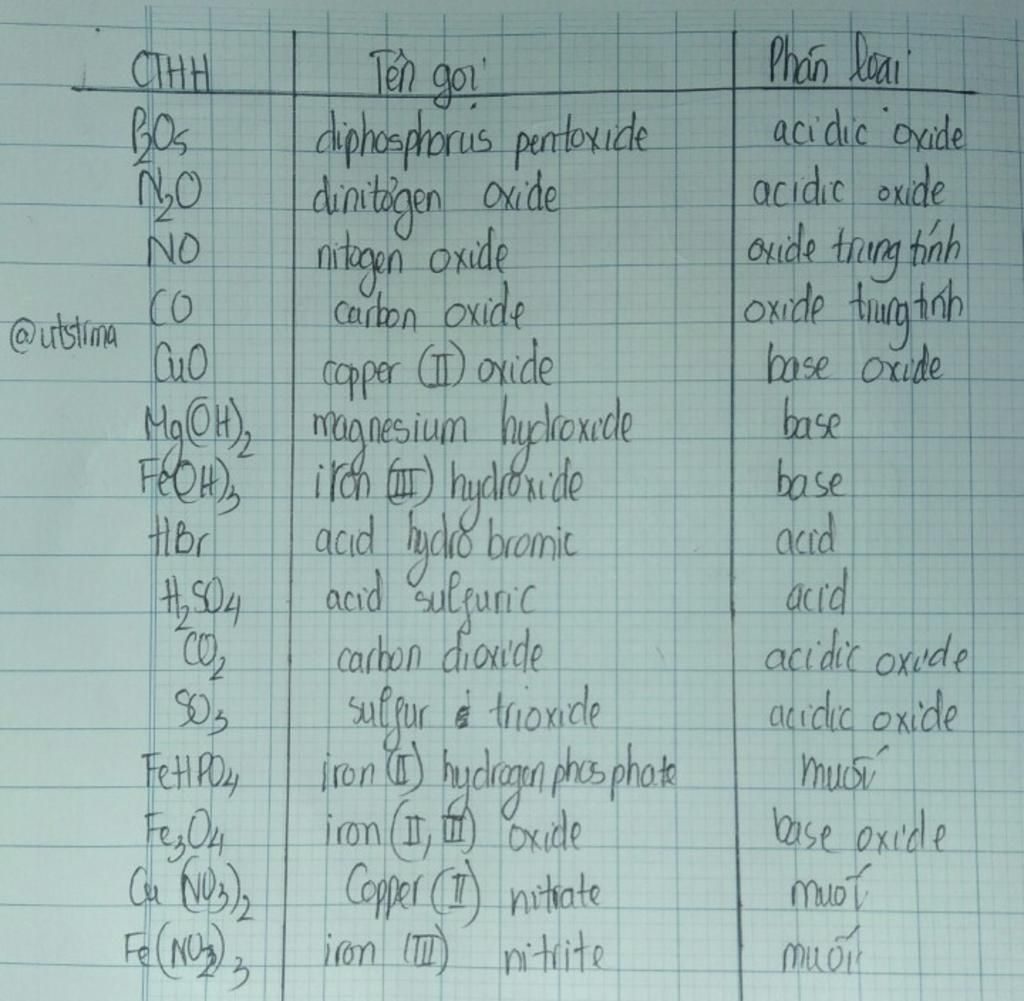 CTHH Tên gọi Phân loại
P₂O₅ diphosphorus pentoxide acidic oxide
N₂O dinitogen oxide acidic oxide
NO nitogen oxide oxide trung tính
CO carbon oxide oxide trung tính
@utstima
CuO copper (II) oxide base oxide
Mg(OH)₂ magnesium hydroxide base
Fe(OH)₃ iron (III) hydroxide base
HBr acid hydro bromic acid
H₂SO₄ acid sulfuric acid
CO₂ carbon dioxide acidic oxide
SO₃ sulfur trioxide acidic oxide
FeHPO₄ iron (II) hydrogen phosphate muối
Fe₃O₄ iron (II, III) oxide base oxide
Cu (NO₃)₂ Copper (II) nitrate muối
Fe(NO₂)₃ iron (III) nitrite muối